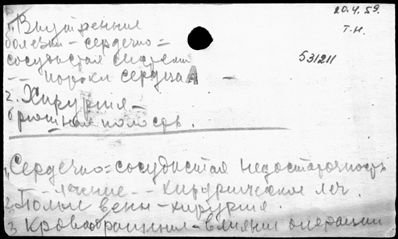 20.4.59.
1. Внутренния
Т.Н.
болезни - сердечно=
сосудистая система
531211
- - пороки сердца А -
2. Хирургия -
брюшная полость.
1. Сердечно=сосудистая недостаточность
- лечение - - хирургическое леч.
2. Полые вены - хирургия.
3. Кровообращения - влияние операции